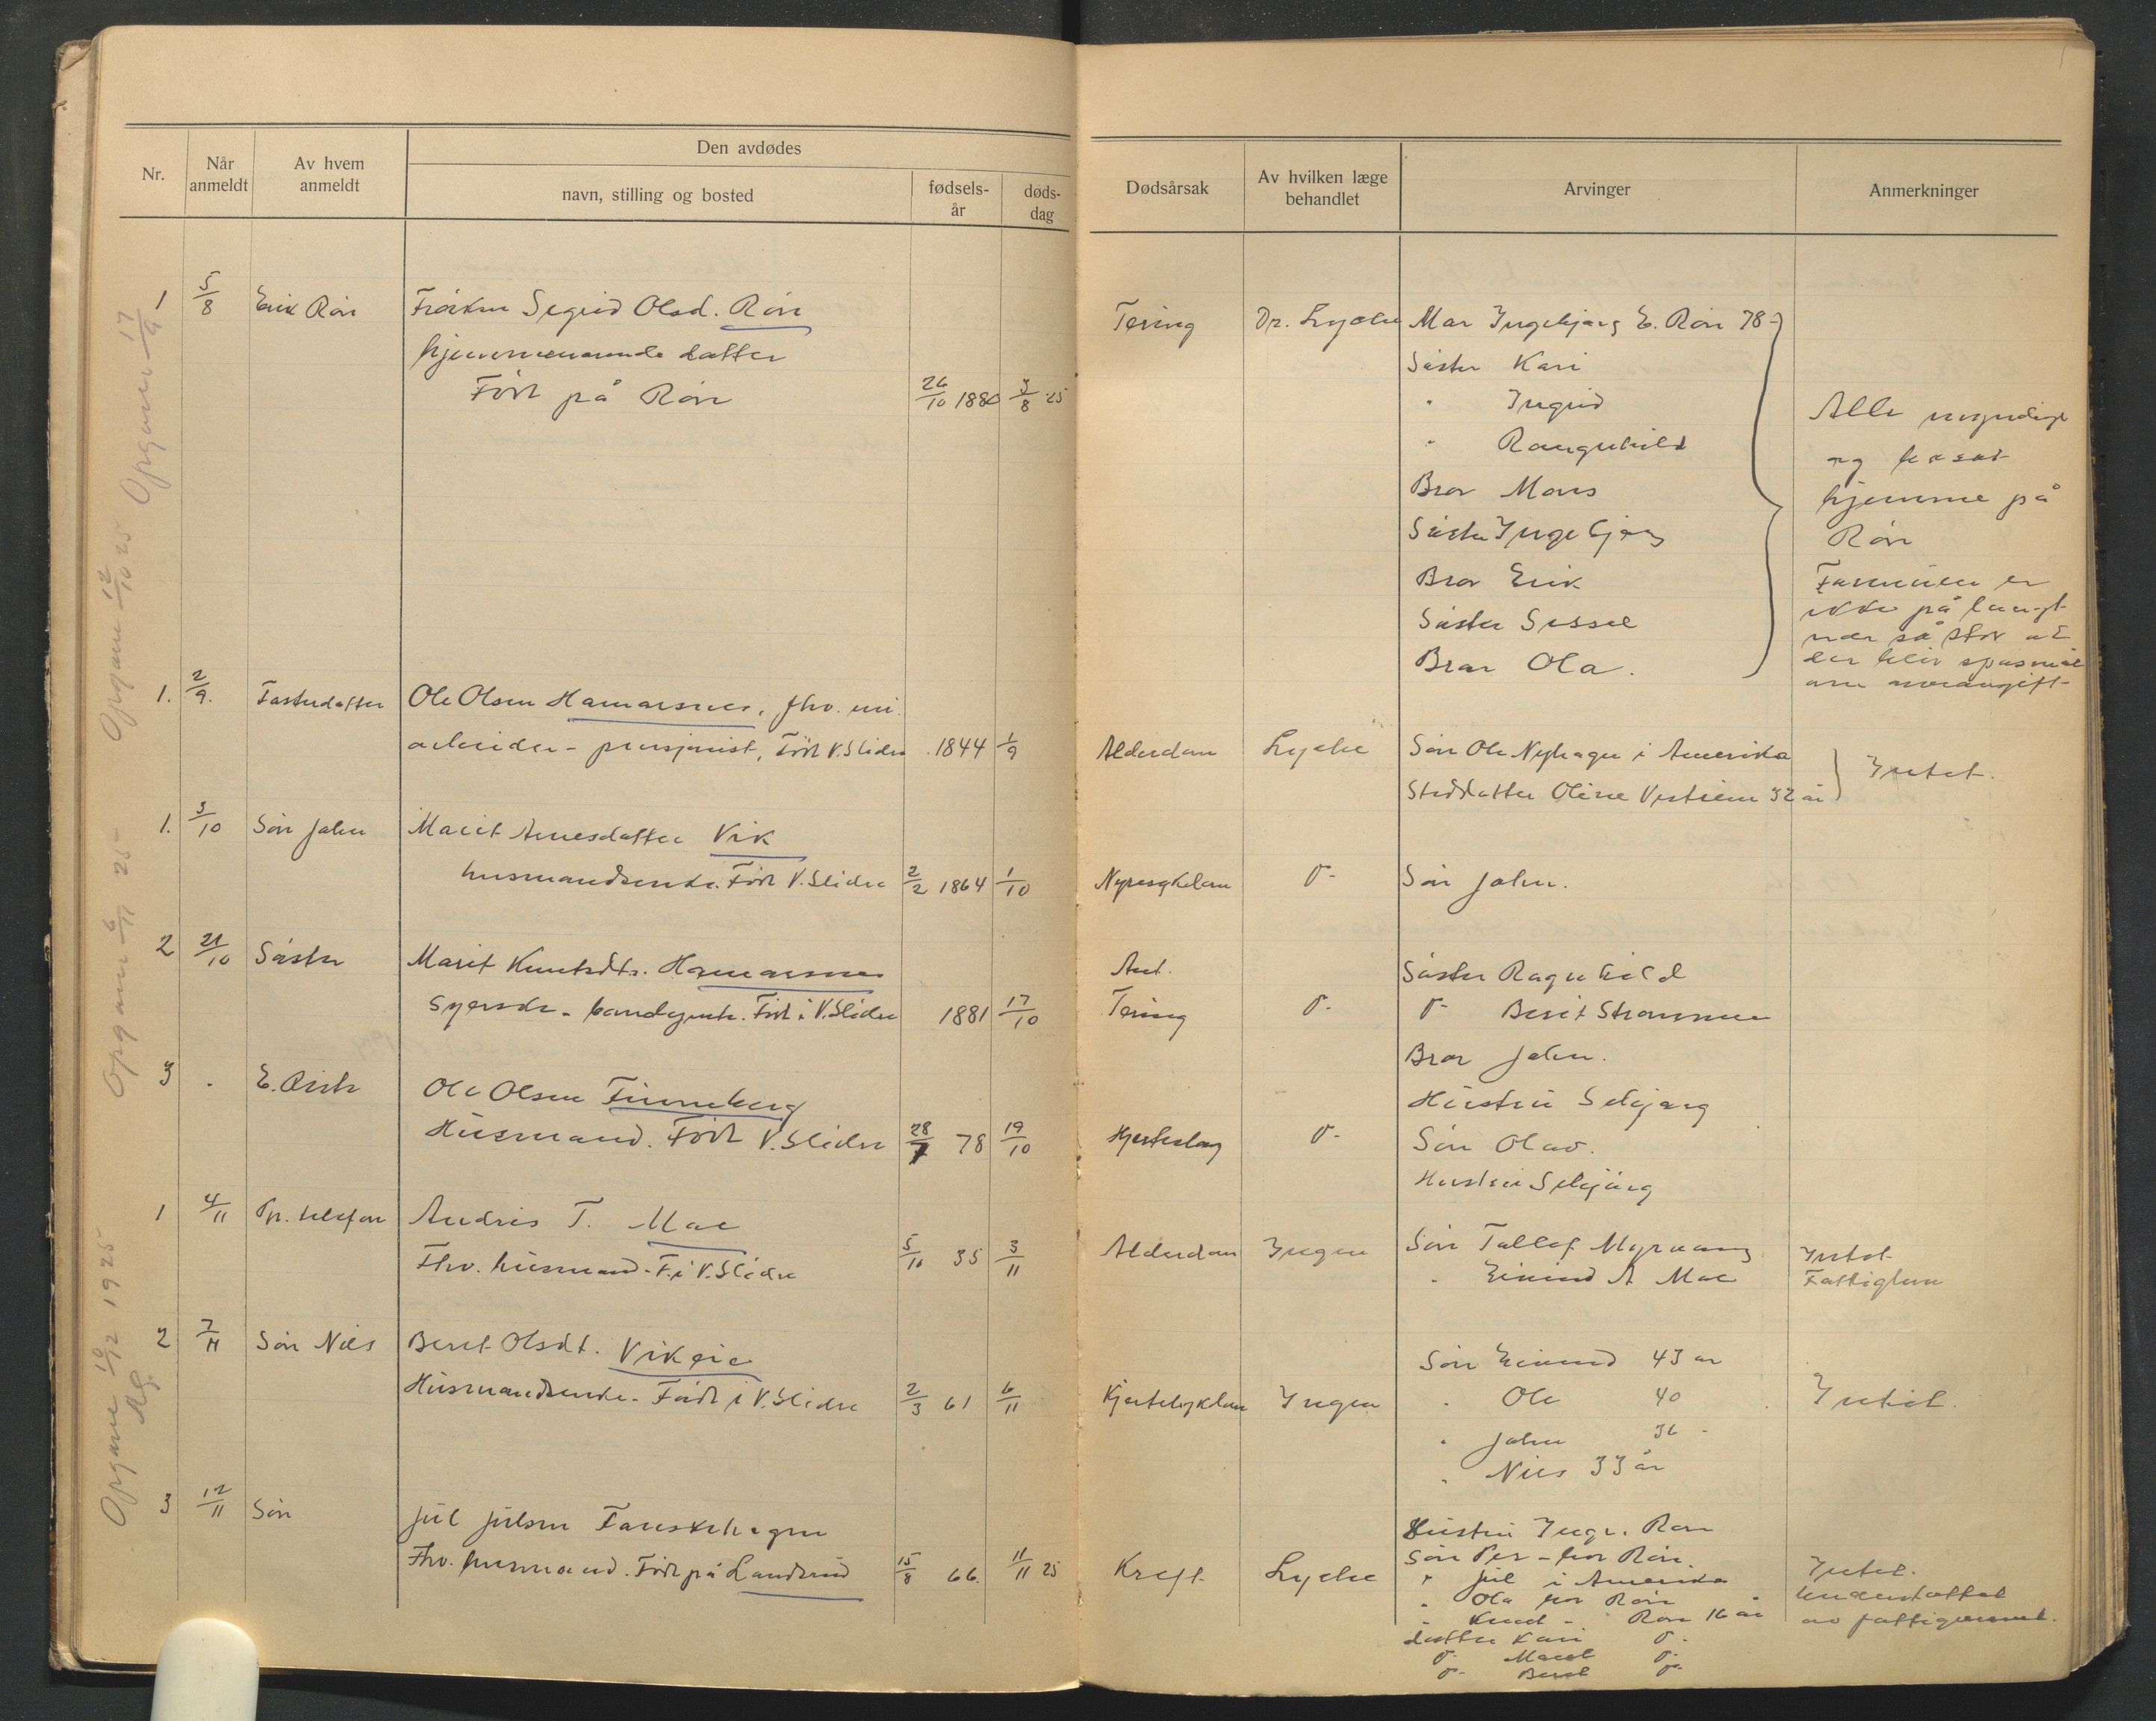 Nr.
Når anmeldt
Av hvem anmeldt
Den avdødes
navn, stilling og bosted
fødsels-år
døds-dag
Dødsårsak
Av hvilken læge behandlet
Arvinger
Anmerkninger
Opgaver 17/9
1 5/8 Erik Røn Frøken Segrid Olsd. Røn
hjemmeværende datter
Født på Røn 26/10 1880 3/8 25
Tæring Dr. Lyche Mor Ingebjørg E. Røn 78
Søster Kari
" Ingrid
" Rangnhild
Bror Mons
Søster Ingebjørg
Bror Erik
Søster Sissel
Bror Ola.
Alle myndige
og bosat
hjemme på
Røn
Formuen er
ikke på langt
nær så stor at
der blir spørsmål
om arveavgift
Opgave 12/10 25
1. 2/9. Fosterdatter Ole Olsen Hamarsnes, fhv.
arbeider - pensjonist, Født V. Slidre 1844 1/9
Alderdom Lyche Søn Ole Nyhagen i Amerika
Steddatter Oline 32 år
Intet.
Opgave 6/11 25
1. 3/10 Søn John Marit Arnesdatter Vik
husmandsenke. Født V. Slidre 2/2 1864 1/10
Nyresykdom d- Søn John.
2 21/10 Søster Marit Knutsdtr. Hamarsnes
Syerske - Født i V. Slidre 1881 17/10
Ant.
Tæring d- Søster Ragnhild
d- Berit Strømmen
Bror John.
3 " E. Ole Olsen Finneberg
Husmand. Født V. Slidre 28/7 78 19/10
Hjerteslag d- Hustru Sebjørg
Søn Olav.
Hustru Sebjørg
Opgave 10/12 1925
1 4/11 Pr. telefon Andris T. Moe
Fhv. husmand - F. i V. Slidre 5/10 35 3/11
Alderdom Ingen Søn Tollef Myrvang
" Eivind A Moe
Intet
Fattiglem
2 7/11 Søn Nils Berit Olsdt. Vikeie
Husmandsenke - Født i V. Slidre 2/3 61 6/11
Hjertesykdom Ingen Søn Eivind 43 år
" Ole 40
" John 36 -
" Nils 33 år
Intet.
3 12/11 Søn Jul Julsen Fauskehagen
Fhv. husmand. Født på Landsrud 15/8 66. 11/11 25
Kreft Lyche Hustru Ingr. Røn
Søn Per - hos Røn.
" Jul i Amerika
" Ola hos Røn
" Knut - Røn 16 år
datter Kari d-
d- Marit d-
d- Berit d-
Intet.
Understøttet
av fattigvesenet.